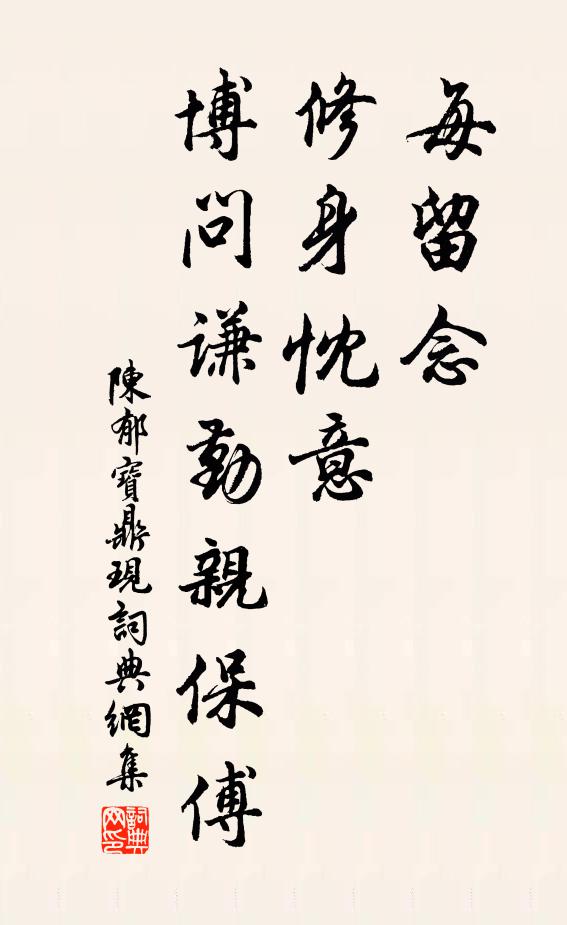 每留念
修身忱意
博問謙勤親保傅
陳郁寶鼎現詞典網集
詞典网印